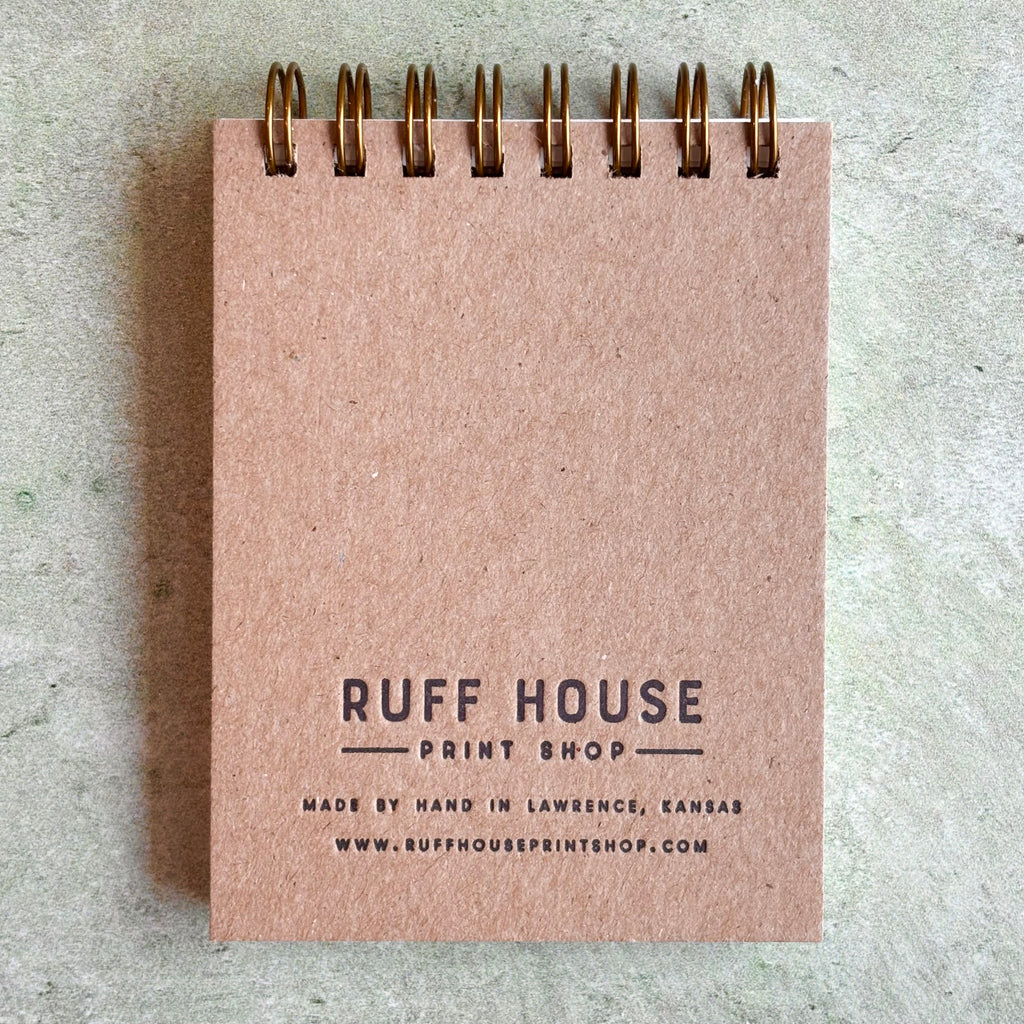 RUFF HOUSE
PRINT SHOP
MADE BY HAND IN LAWRENCE, KANSAS
WWW.RUFFHOUSEPRINTSHOP.COM